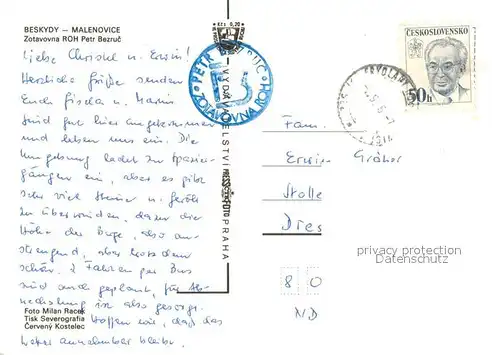 BESKYDY – MALENOVICE
Zotavovna ROH Petr Bezruč
Liebe Christel u. Erwin!
Herzliche Grüße senden
Euch Gisela u. Martin
Sind gut hier angekommen
und leben uns ein. Die
Umgebung ladet zu Spazier-
gängen ein, aber es gibt
sehr viel Steine u. Geröll
zu überwinden, dazu die
Höhe der Berge, also an-
strengend, aber trotzdem
schön. 2 Fahrten per Bus
sind auch geplant, für Ab-
wechslung ist also gesorgt.
Hoffen wir, daß das
Wetter annehmbar bleibt.
Foto Milan Racek
Tisk Severografia
Červený Kostelec
Kčs 0,20
VYDAVATELSTVÍ
PRESSFOTO
PRAHA
PETR BEZRUČ
ZOTAVOVNA ROH
ČESKOSLOVENSKO
50h
Fam.
Erwin Gräher
Stolle
Dres
privacy protection
Datenschutz
8 0
ND